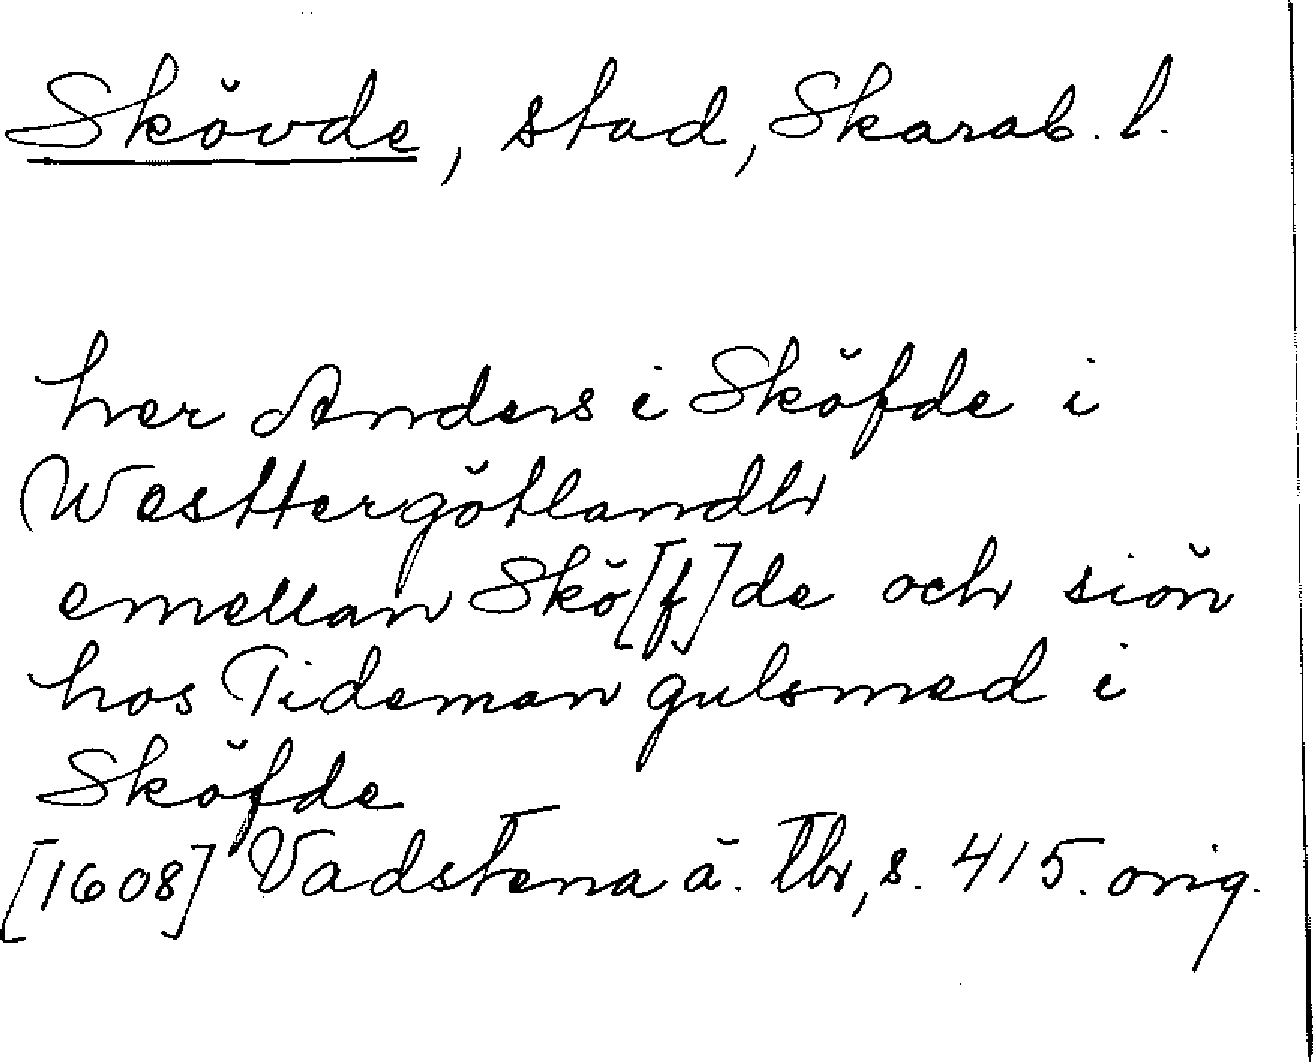 Skövde, stad, Skarab. l.
her Anders i Sköfde i
Westtergötlandh
emellan Skö[f]de och siön
hos Tideman gulsmed i
Sköfde
[1608] Vadstena ä. tb, s. 415. orig.